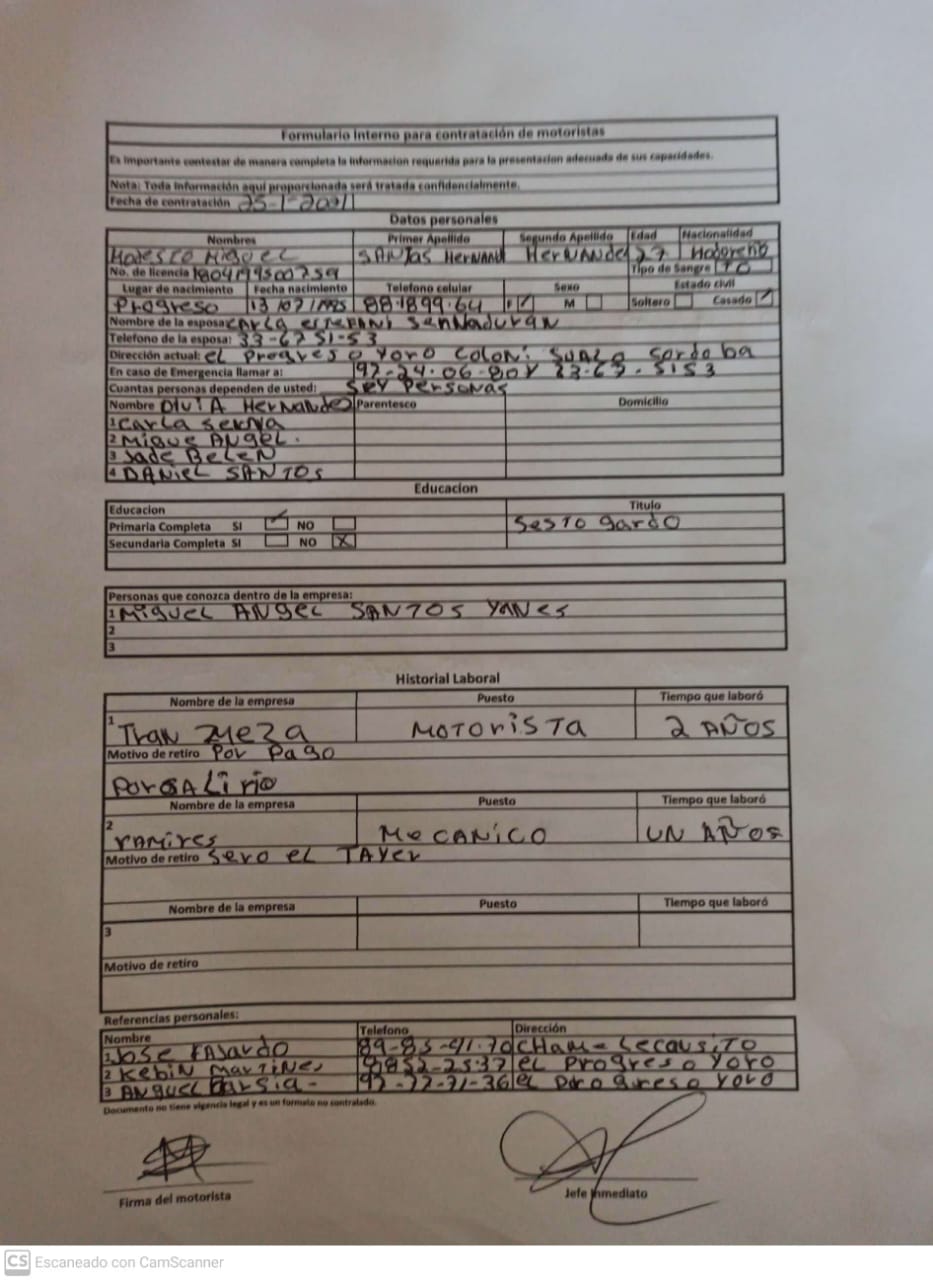 Formulario Interno para contratación de motoristas
Es importante contestar de manera completa la informacion requerida para la presentacion adecuada de sus capacidades.
Nota: Toda información aquí proporcionada será tratada confidencialmente.
Fecha de contratación 25-1-2021
Datos personales
Nombres Primer Apellido Segundo Apellido Edad Nacionalidad
Modesto Miguel SANTos HerNANd HerNANdez 27 Hodoreño
No. de licencia 1804199500759 Tipo de Sangre TO
Lugar de nacimiento Fecha nacimiento Telefono celular Sexo Estado civil
Progreso 13/07/1995 88-1899-64 F M Soltero Casado
Nombre de la esposa: CArLA
Telefono de la esposa: 33-67-51-53
Dirección actual: eL Progreso Yoro Coloni
En caso de Emergencia llamar a: 97-24-06-80 Y
Cuantas personas dependen de usted: Sey Personas
Nombre OLviA HerNANdez Parentesco Domicilio
1 CArLa SerNA
2 Migue ANgeL.
3 Jade BeLeN
4 DANieL SANTOS
Educacion
Educacion Titulo
Primaria Completa SI NO SesTo gardo
Secundaria Completa SI NO X
Personas que conozca dentro de la empresa:
1 MigueL ANgeL SANTOS YaNes
2
3
Historial Laboral
Nombre de la empresa Puesto Tiempo que laboró
1 TraN Meza MOTorisTa 2 AÑOS
Motivo de retiro Por Pago
Por
Nombre de la empresa Puesto Tiempo que laboró
2 rAmires MeCANiCO UN AÑOS
Motivo de retiro Sero eL TAYer
Nombre de la empresa Puesto Tiempo que laboró
3
Motivo de retiro
Referencias personales:
Nombre Telefono Dirección
1 Jose FAJardo 89-83-41-70
2 KebiN MarTiNes 9852-2537 eL Progreso Yoro
3 ANgueL 97-77-71-36 eL Progreso Yoro
Documento no tiene vigencia legal y es un formato no contralado.
Firma del motorista Jefe Inmediato
CS Escaneado con CamScanner